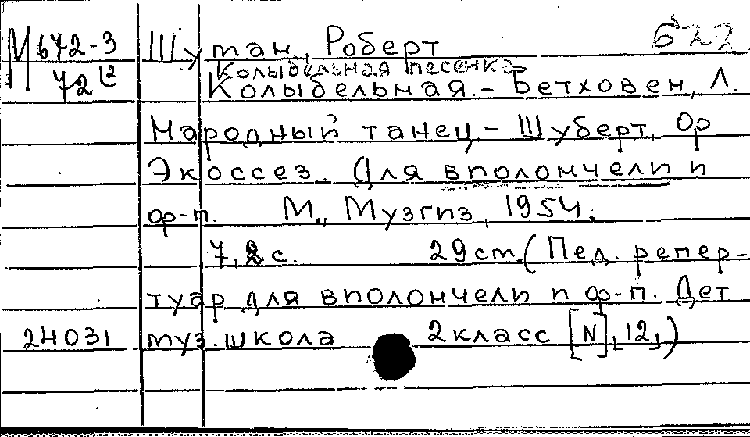 М 672-3 Шуман, Роберт 622
Колыбельная песенка
72 Колыбельная. - Бетховен, Л.
Народный танец. - Шуберт, Фр
Экоссез. Для виолончели и
ф-п. М., Музгиз, 1954.
7,2 с. 29 cm. (Пед. репер-
туар для виолончели и ф-п. Дет
24031 муз. школа 2 класс [N], 12,)